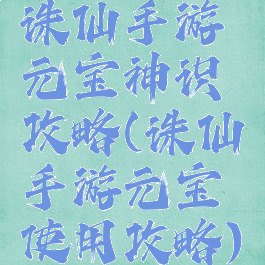 诛仙手游
元宝神识
攻略(诛仙
手游元宝
使用攻略)